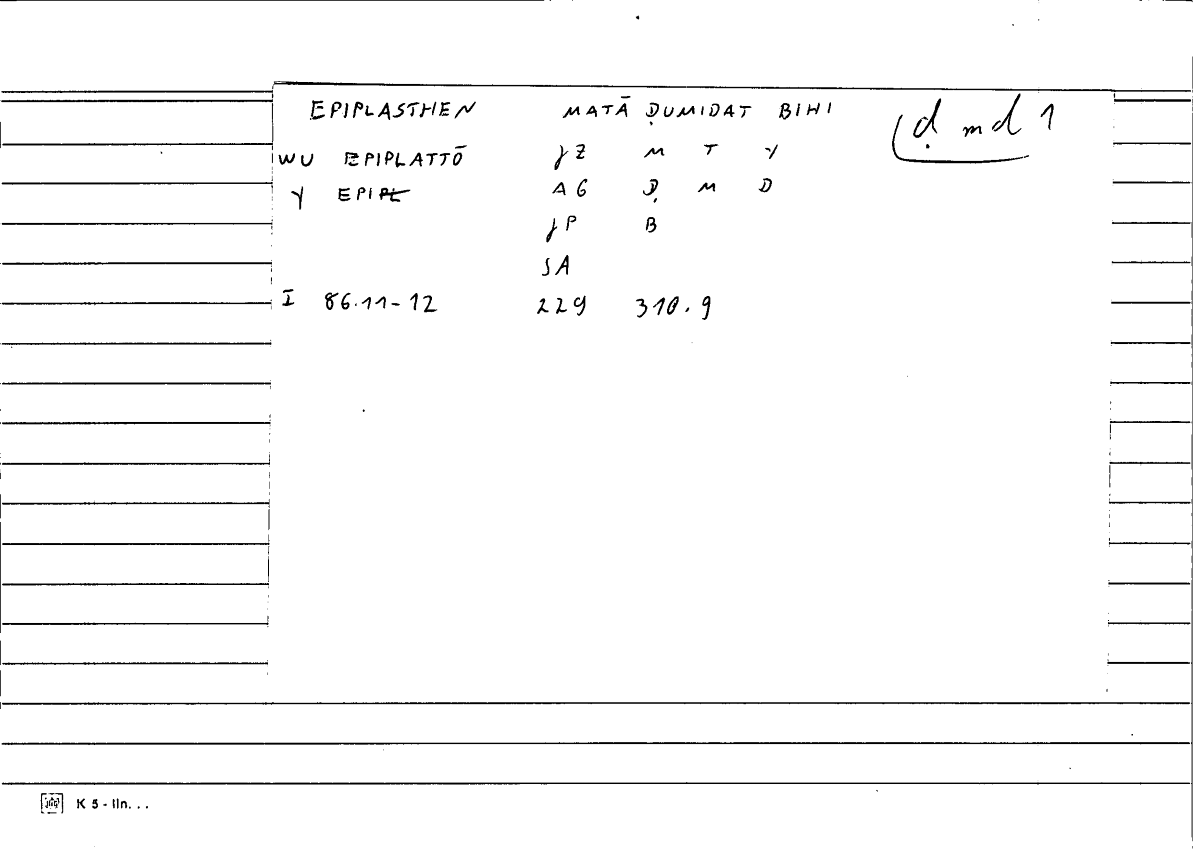 EPIPLASTHEN MATĀ ḌUMIDAT BIHI ḍmd 1
WU EPIPLATTŌ JZ M T Y
Y EPIPL AG Ḍ M D
JP B
SA
I 86.11-12 229 310.9
K 5 - lIn. . .